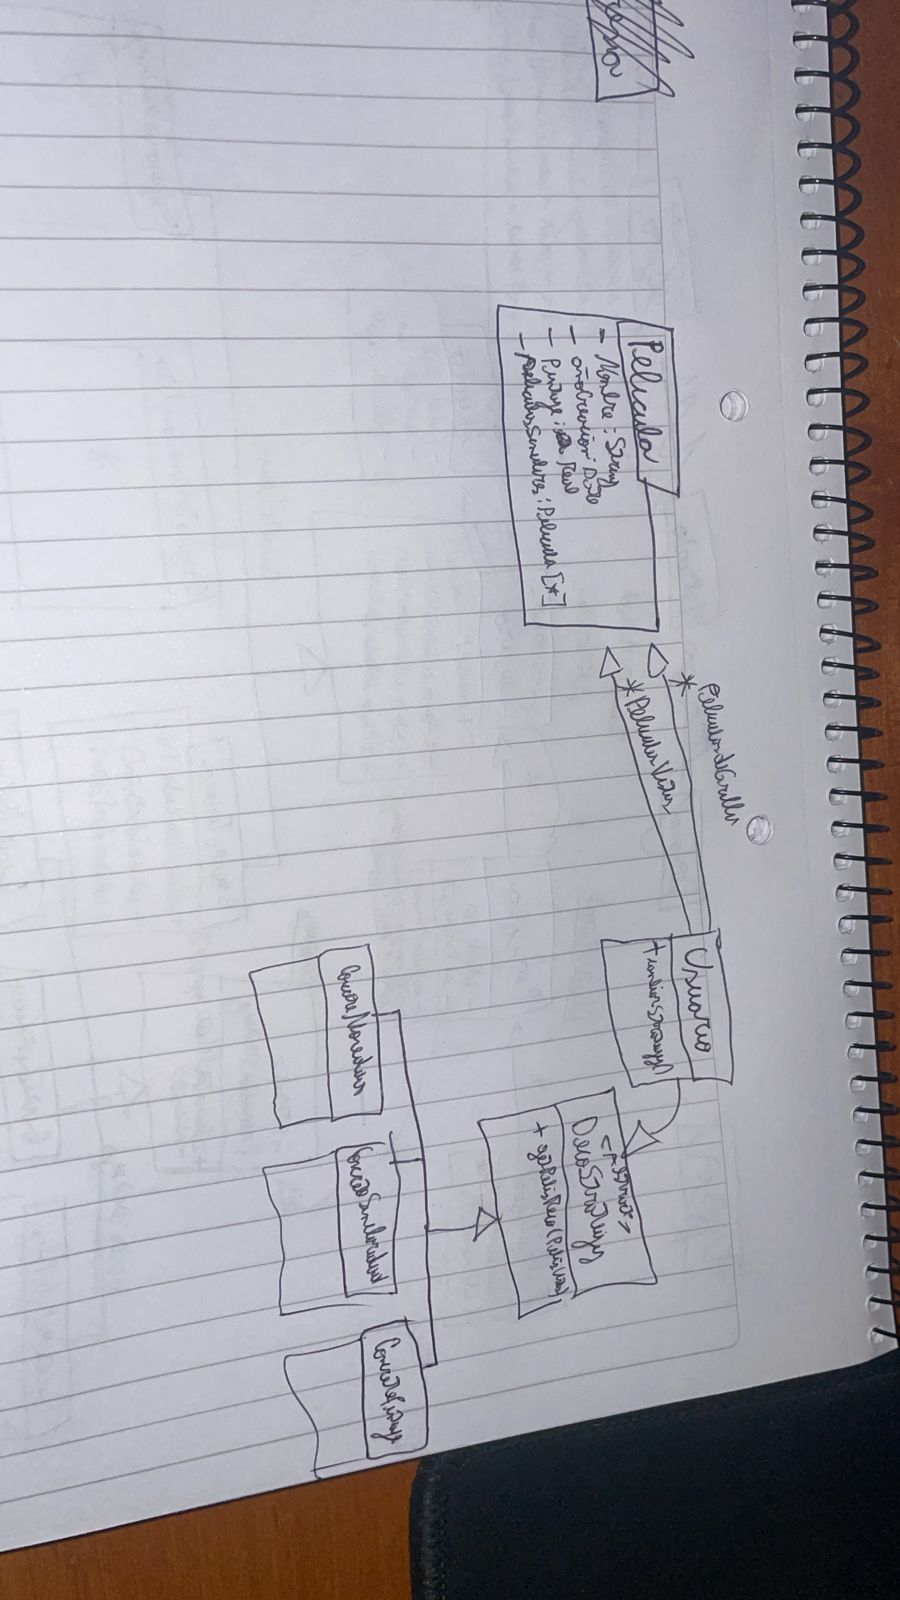 Pelicula
- Nombre: String
- añoCreacion: Date
- Puntaje: Real
- PeliculasSimilares: Pelicula [*]
PeliculasdeGrilla
*
* PeliculasVistas
Usuario
+ cambiarStrategy()
DecoStrategy
+ getPelisReco(PelisVistas)
ConcreteNovedades
ConcreteSimilaridad
ConcretePuntaje